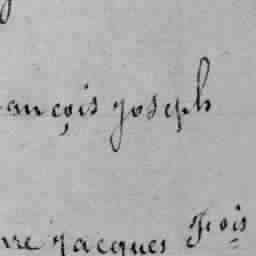 ançois joseph
rre jacques fçois